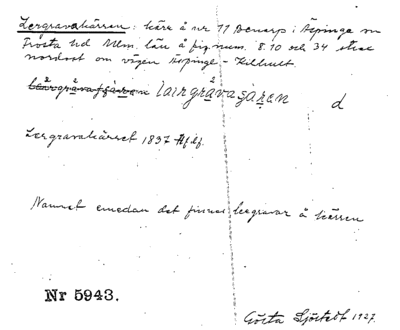 Lergravakärren: kärr å nr 11 Benarp i Äspinge sn
Frosta hd Mlm. län å fig num. 8.10 och 34 strax
nordost om vägen Äspinge - Killhult.
lairgråvaʂaʐen d
Lergravakärret 1837
Namnet emedan det finnes lergravar å kärren
Nr 5943.
Gösta Sjöstedt 1927.